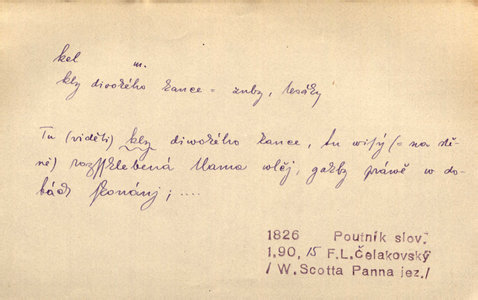 kel
m.
kly divokého kance = zuby, tesáky
Tu (viděti) kly diwokého kance, tu wisý (= na stě-
ně) rozssklebená tlama wlčj, gakby práwě w do-
bách skonánj; ....
1826 Poutník slov.
1,90, 15 F.L.Čelakovský
/ W.Scotta Panna jez./